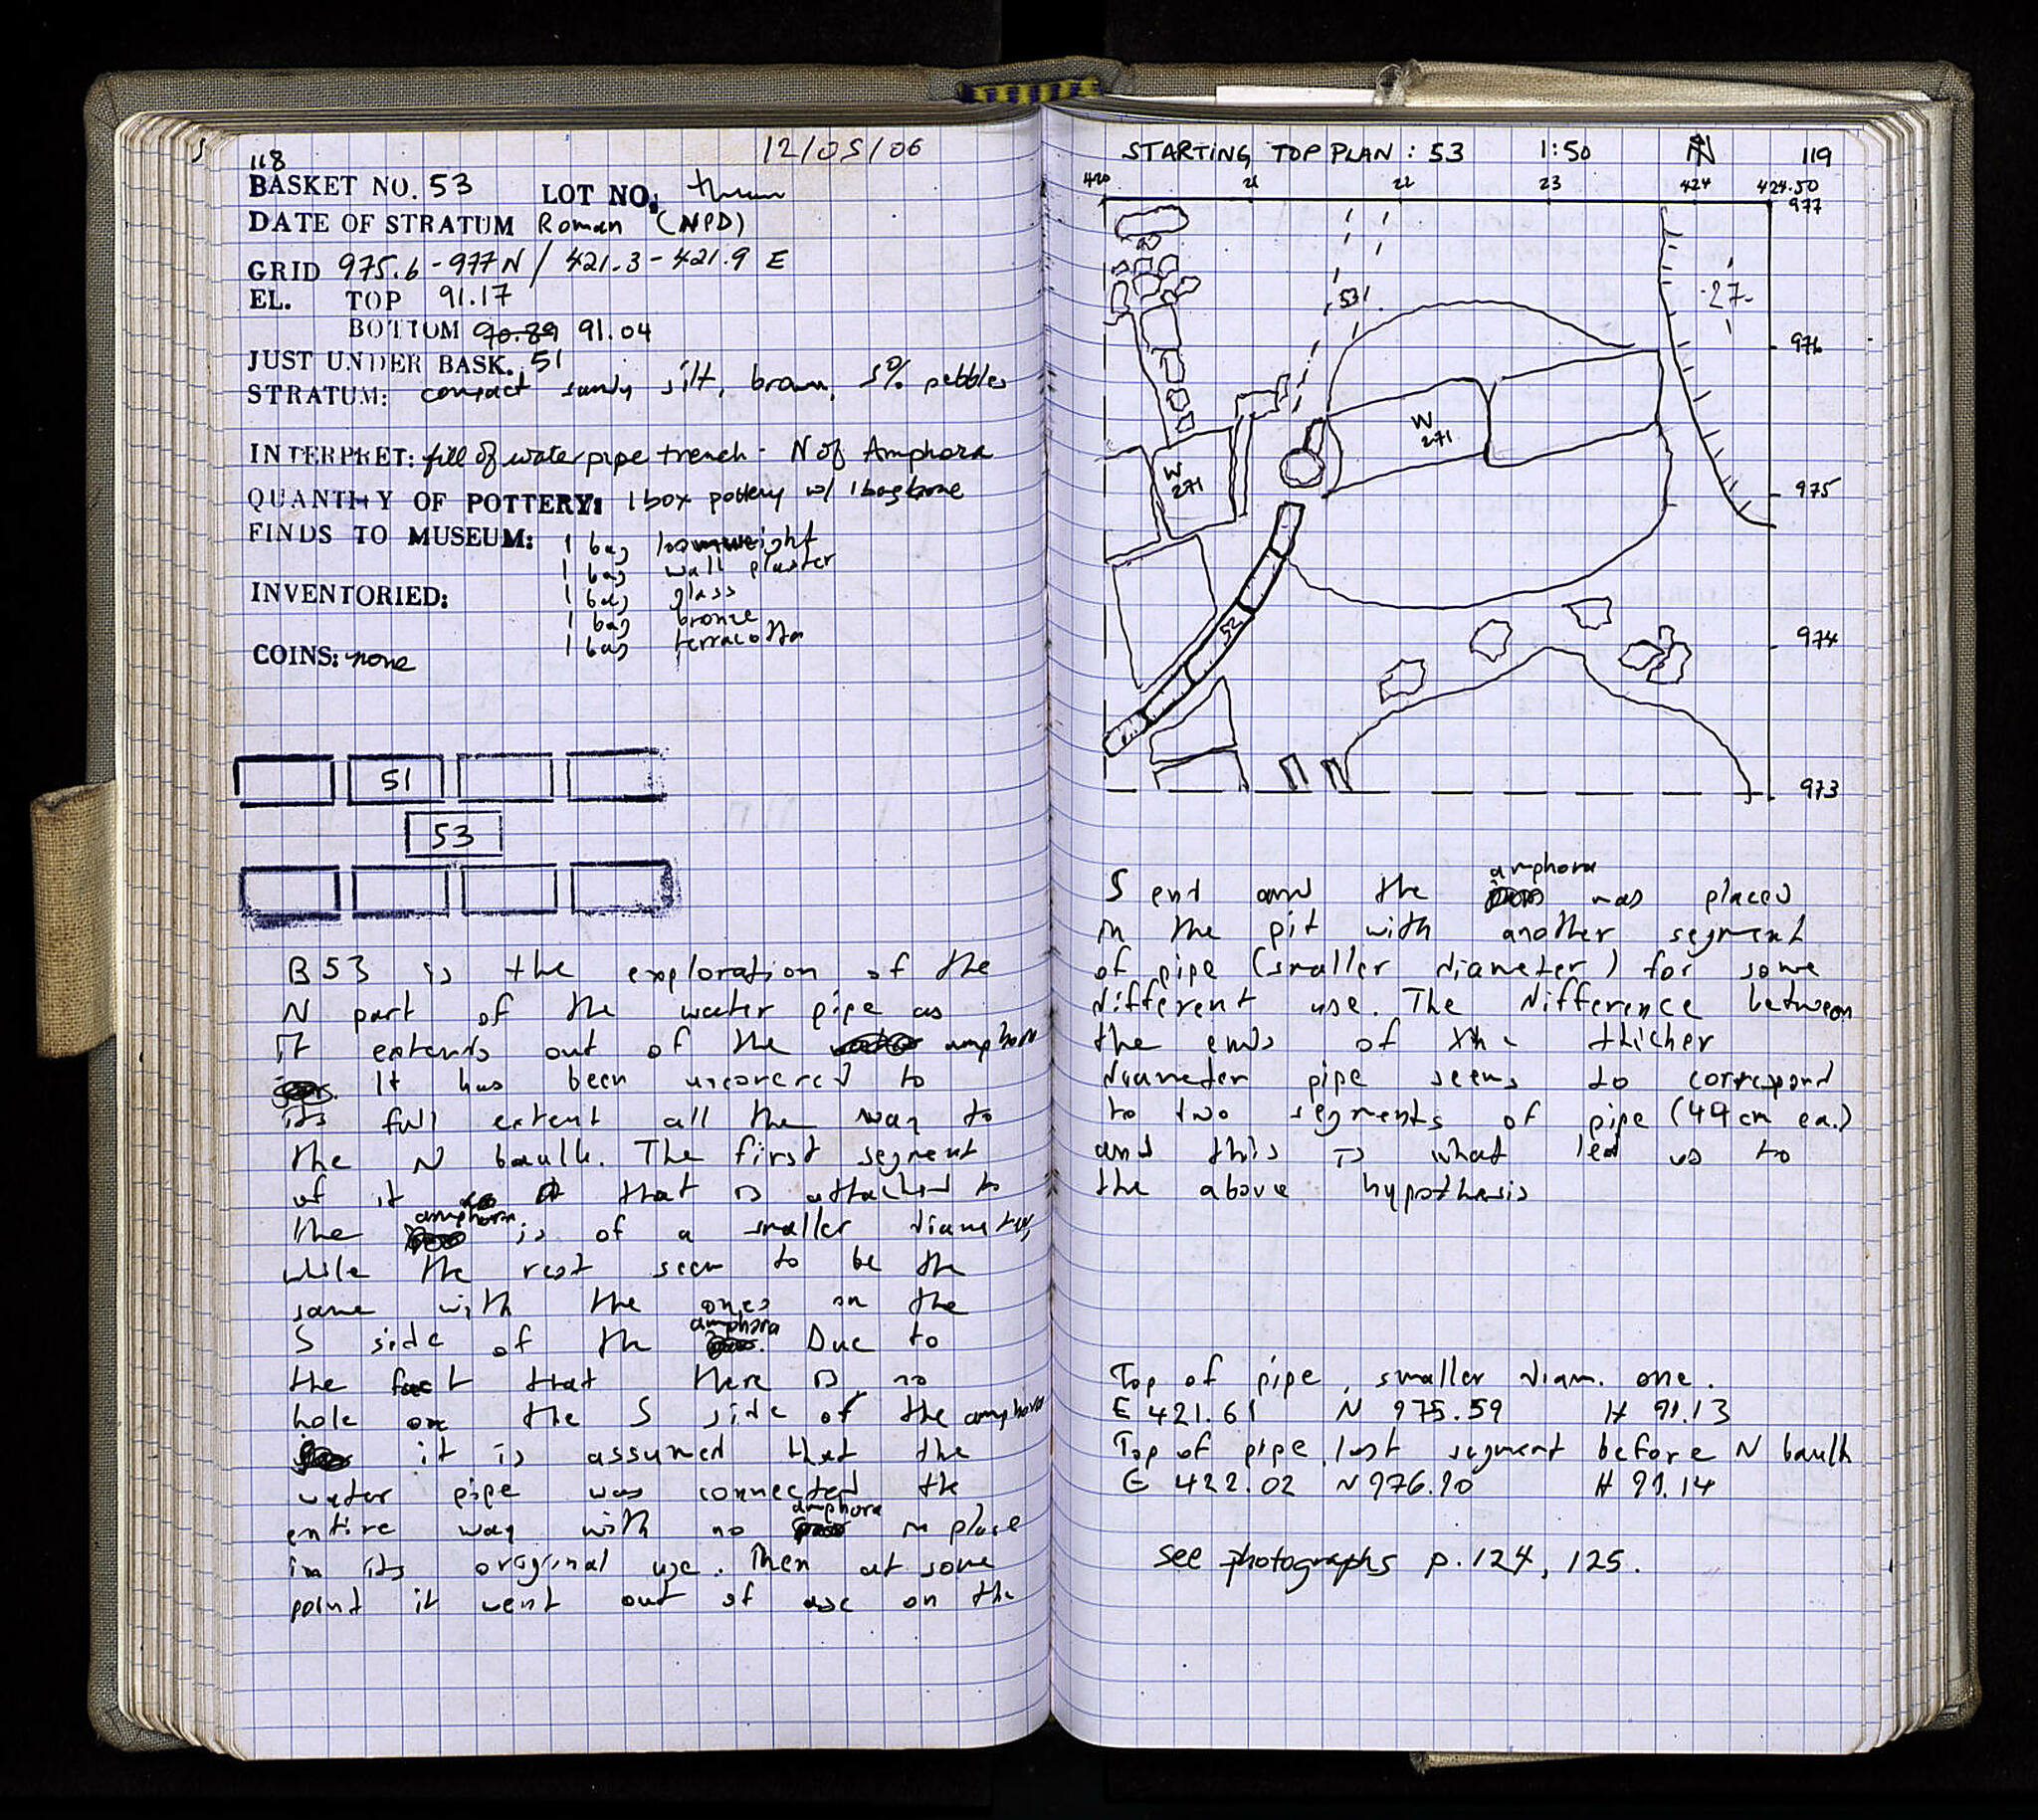 118
12/05/06
BASKET NO. 53 LOT NO:
DATE OF STRATUM Roman (NPD)
GRID 975.6-977 N / 421.3-421.9 E
EL. TOP 91.17
BOTTOM 90.89 91.04
JUST UNDER BASK. 51
STRATUM: compact sandy silt, brown, 5% pebbles
INTERPRET: fill of water pipe trench - N of Amphora
QUANTITY OF POTTERY: 1 box pottery w/ 1 bag bone
FINDS TO MUSEUM: 1 bag loomweight
1 bag wall plaster
INVENTORIED: 1 bag glass
1 bag bronze
1 bag terracotta
COINS: none
51
53
B53 is the exploration of the
N part of the water pipe as
it extends out of the amphora
It has been uncovered to
its full extent all the way to
the N baulk. The first segment
of it that is attached to
the amphora is of a smaller diameter,
while the rest seem to be the
same with the ones on the
S side of the amphora. Due to
the fact that there is no
hole on the S side of the amphora
it is assumed that the
water pipe was connected the
entire way with no amphora in place
in its original use. Then at some
point it went out of use on the
STARTING TOP PLAN : 53 1:50 N 119
420 21 22 23 424 424.50
977
53
27
976
W 271
W 271
975
52
974
973
S end and the amphora was placed
in the pit with another segment
of pipe (smaller diameter) for some
different use. The difference between
the ends of the thicker
diameter pipe seems to correspond
to two segments of pipe (49 cm ea.)
and this is what led us to
the above hypothesis
Top of pipe, smaller diam. one.
E 421.61 N 975.59 H 91.13
Top of pipe, last segment before N baulk
E 422.02 N 976.90 H 91.14
see photographs p. 124, 125.